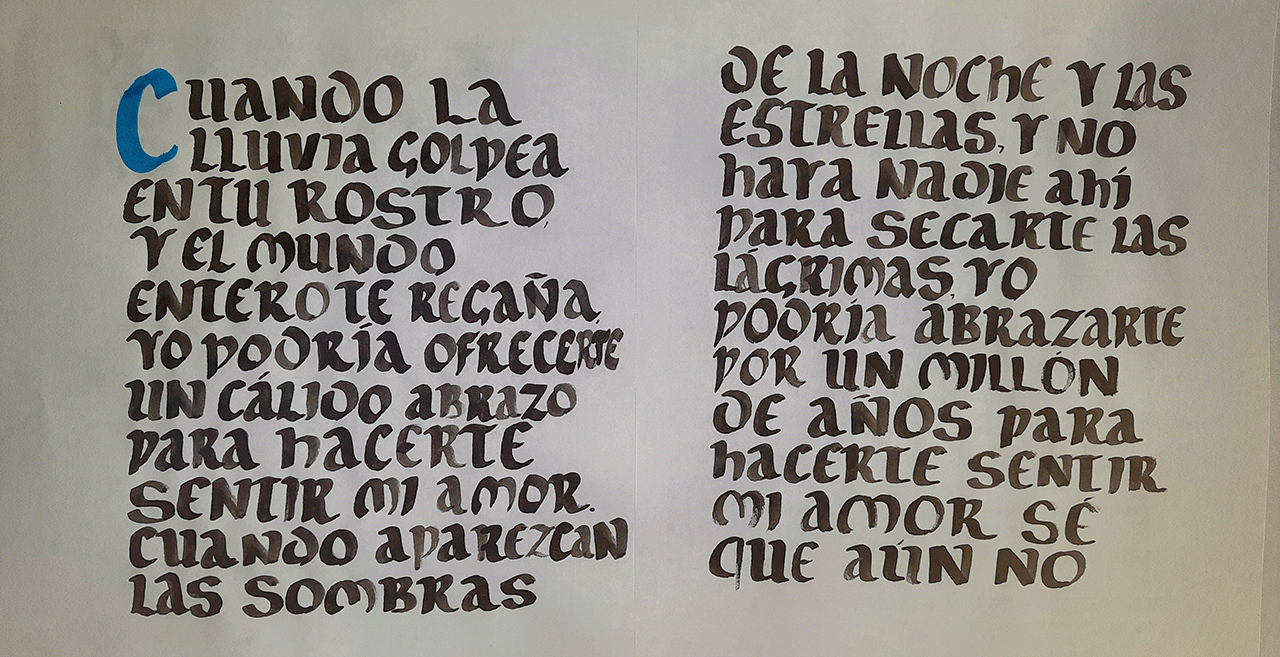 CUANDO LA
LLUVIA GOLPEA
EN TU ROSTRO,
Y EL MUNDO
ENTERO TE REGAÑA,
YO PODRÍA OFRECERTE
UN CÁLIDO ABRAZO
PARA HACERTE
SENTIR MI AMOR.
CUANDO APAREZCAN
LAS SOMBRAS
DE LA NOCHE Y LAS
ESTRELLAS, Y NO
HAYA NADIE AHÍ
PARA SECARTE LAS
LÁGRIMAS, YO
PODRÍA ABRAZARTE
POR UN MILLÓN
DE AÑOS PARA
HACERTE SENTIR
MI AMOR SÉ
QUE AÚN NO